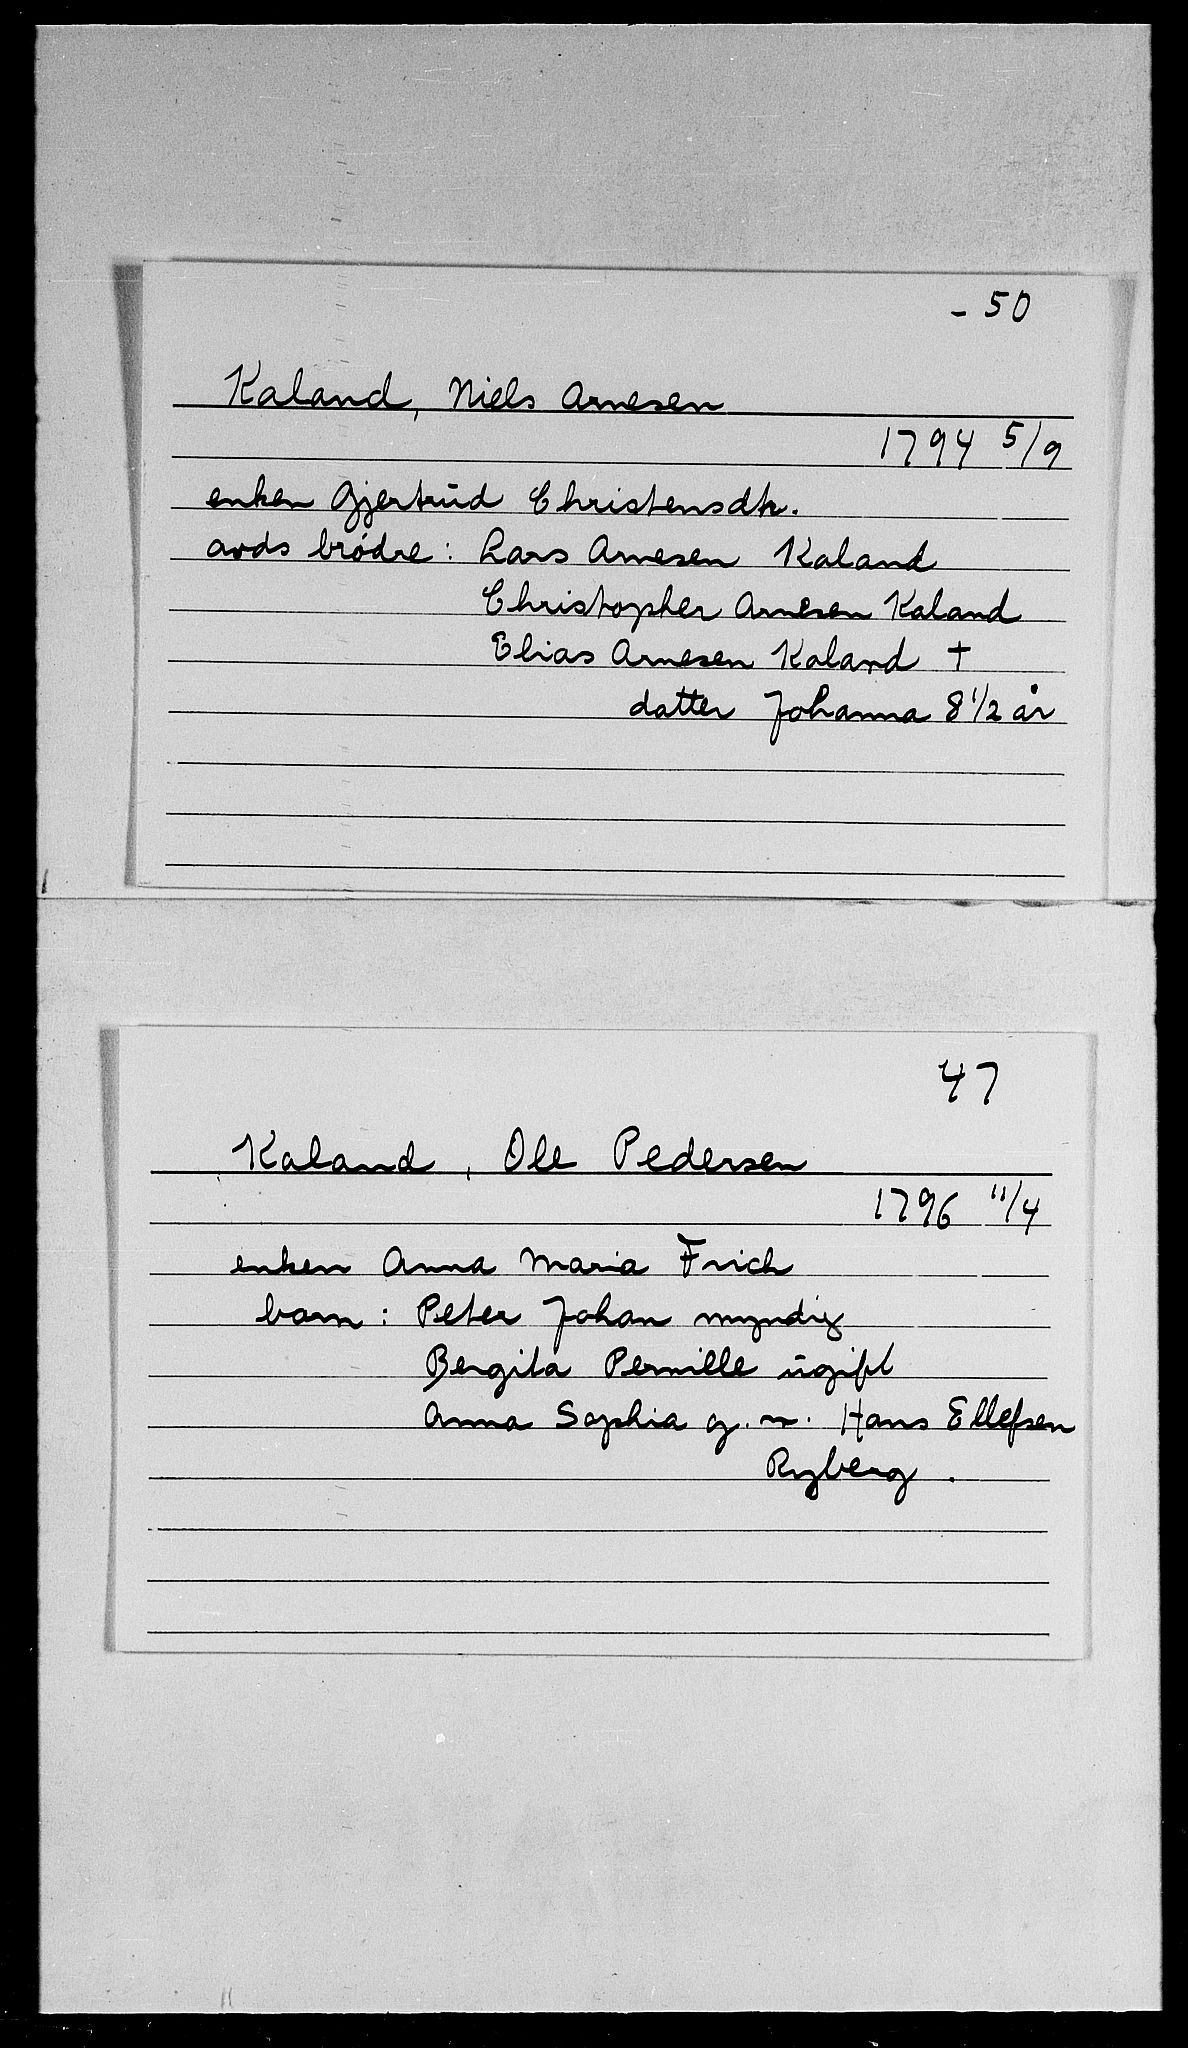 - 50
Kaland, Niels Arnesen
1794 5/9
enken Gjertrud Christensdtr.
avds brödre: Lars Arnesen Kaland
Christopher Arnesen Kaland
Elias Arnesen Kaland †
datter Johanna 8 1/2 år
47
Kaland, Ole Pedersen
1796 11/4
enken Anna Maria Frich
barn: Peter Johan myndig
Bergita Pernille ugift
Anna Sophia g. m. Hans Ellefsen
Ryberg.